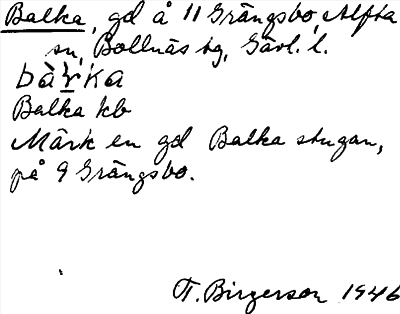 Balka, gd å 11 Grängsbo, Alfta
sn, Bollnäs tg, Gävl. l.
bàl̥ka
Balka kb
Märk en gd Balka stugan,
på 9 Grängsbo.
T. Birgerson 1946